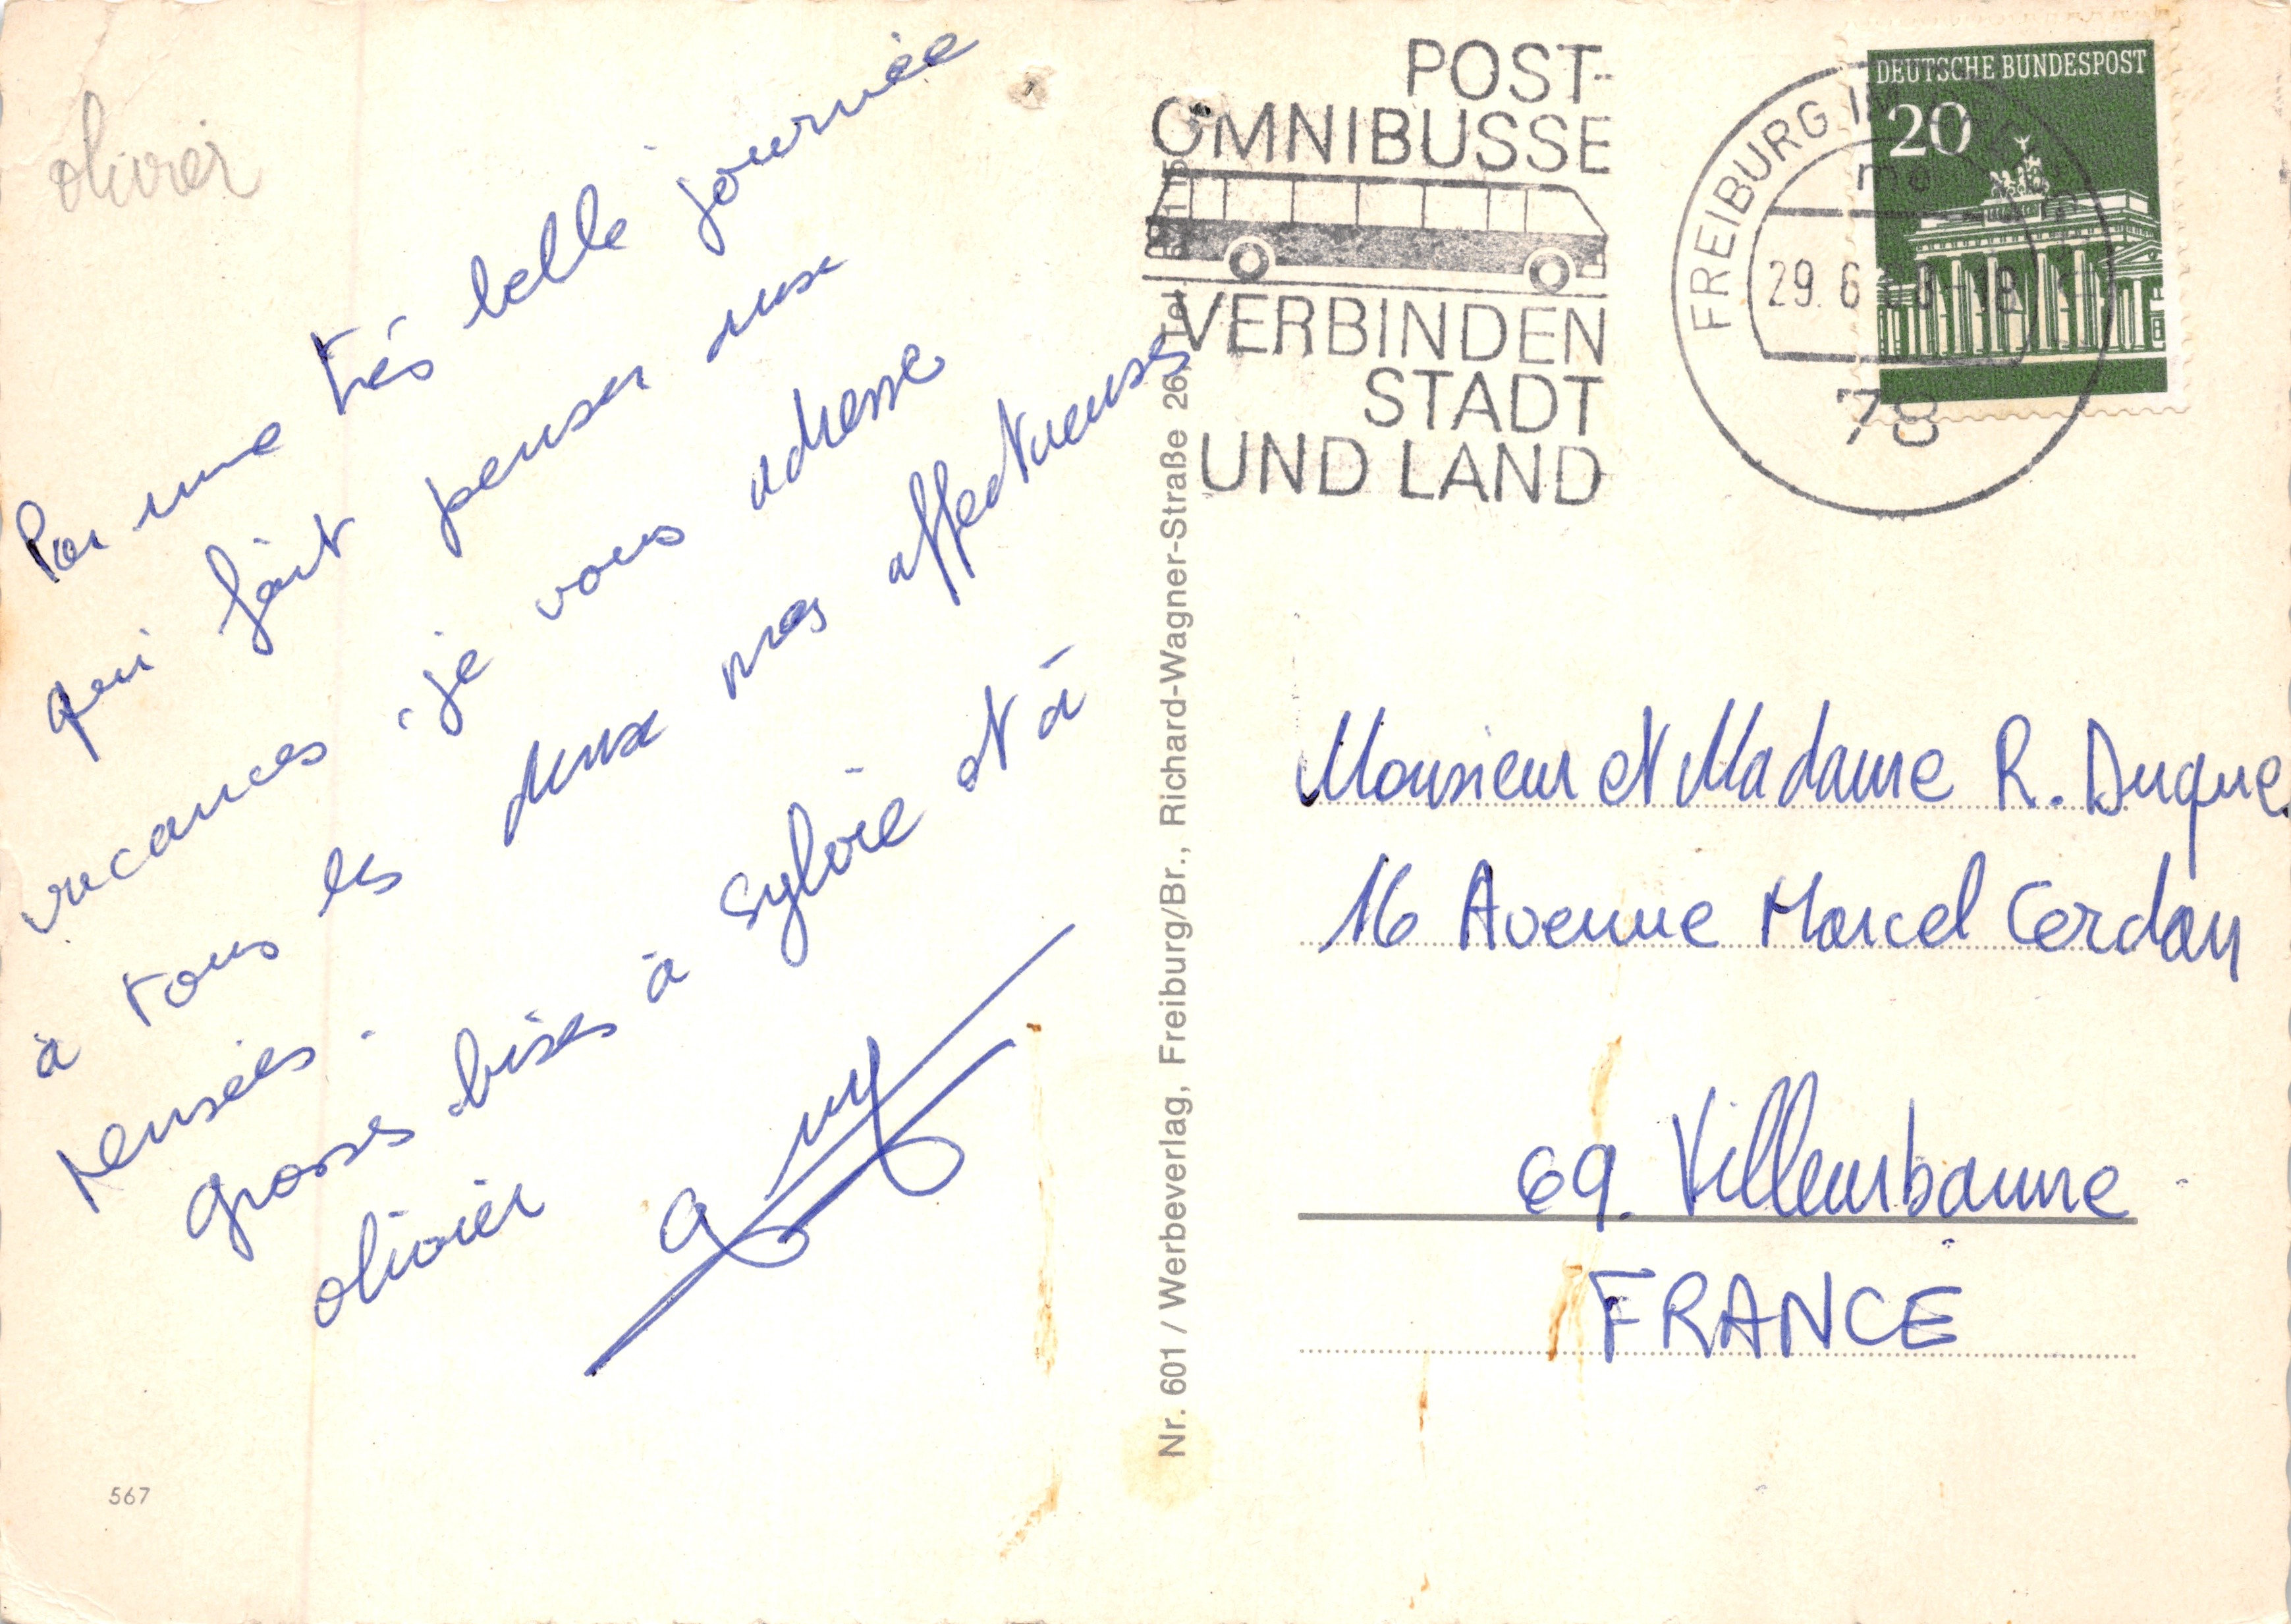 olivier
Par une très belle journée
qui fait penser aux
vacances, je vous adresse
à tous les deux mes affectueuses
pensées.
grosses bises à Sylvie et à
olivier
POST-
OMNIBUSSE
VERBINDEN
STADT
UND LAND
FREIBURG IM
29.6
78
DEUTSCHE BUNDESPOST
20
Nr. 601 / Werbeverlag, Freiburg/Br., Richard-Wagner-Straße 26, Tel.
Monsieur et Madame R. Duque
16 Avenue Marcel Cerdan
69. Villeurbanne
FRANCE
567